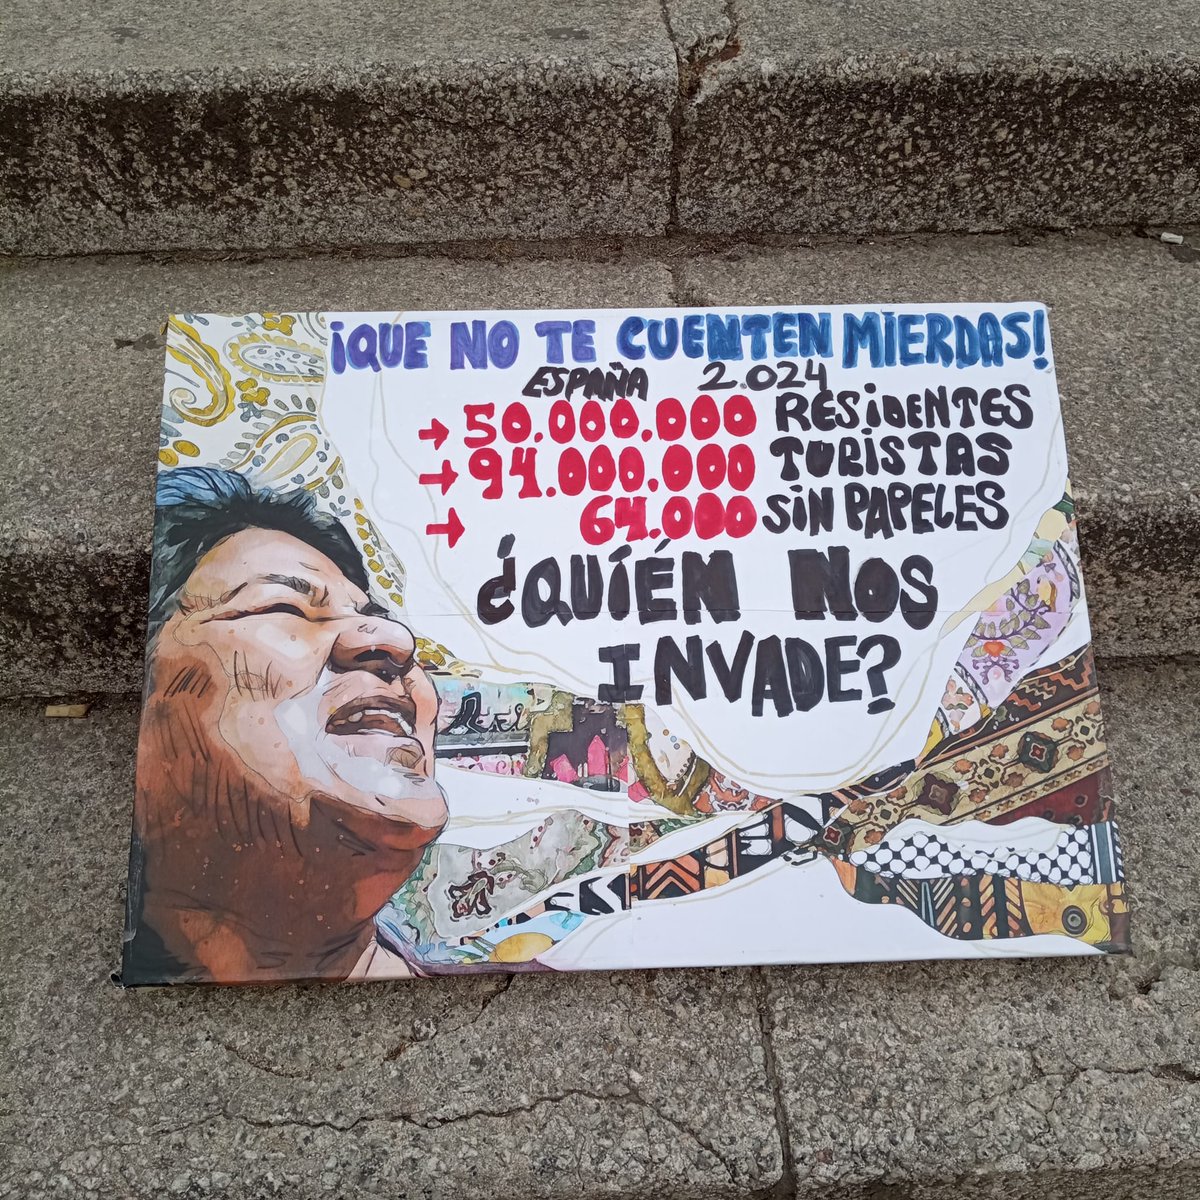 ¡QUE NO TE CUENTEN MIERDAS!
ESPAÑA 2.024
→ 50.000.000 RESIDENTES
→ 94.000.000 TURISTAS
→ 64.000 SIN PAPELES
¿QUÍÉN NOS
INVADE?